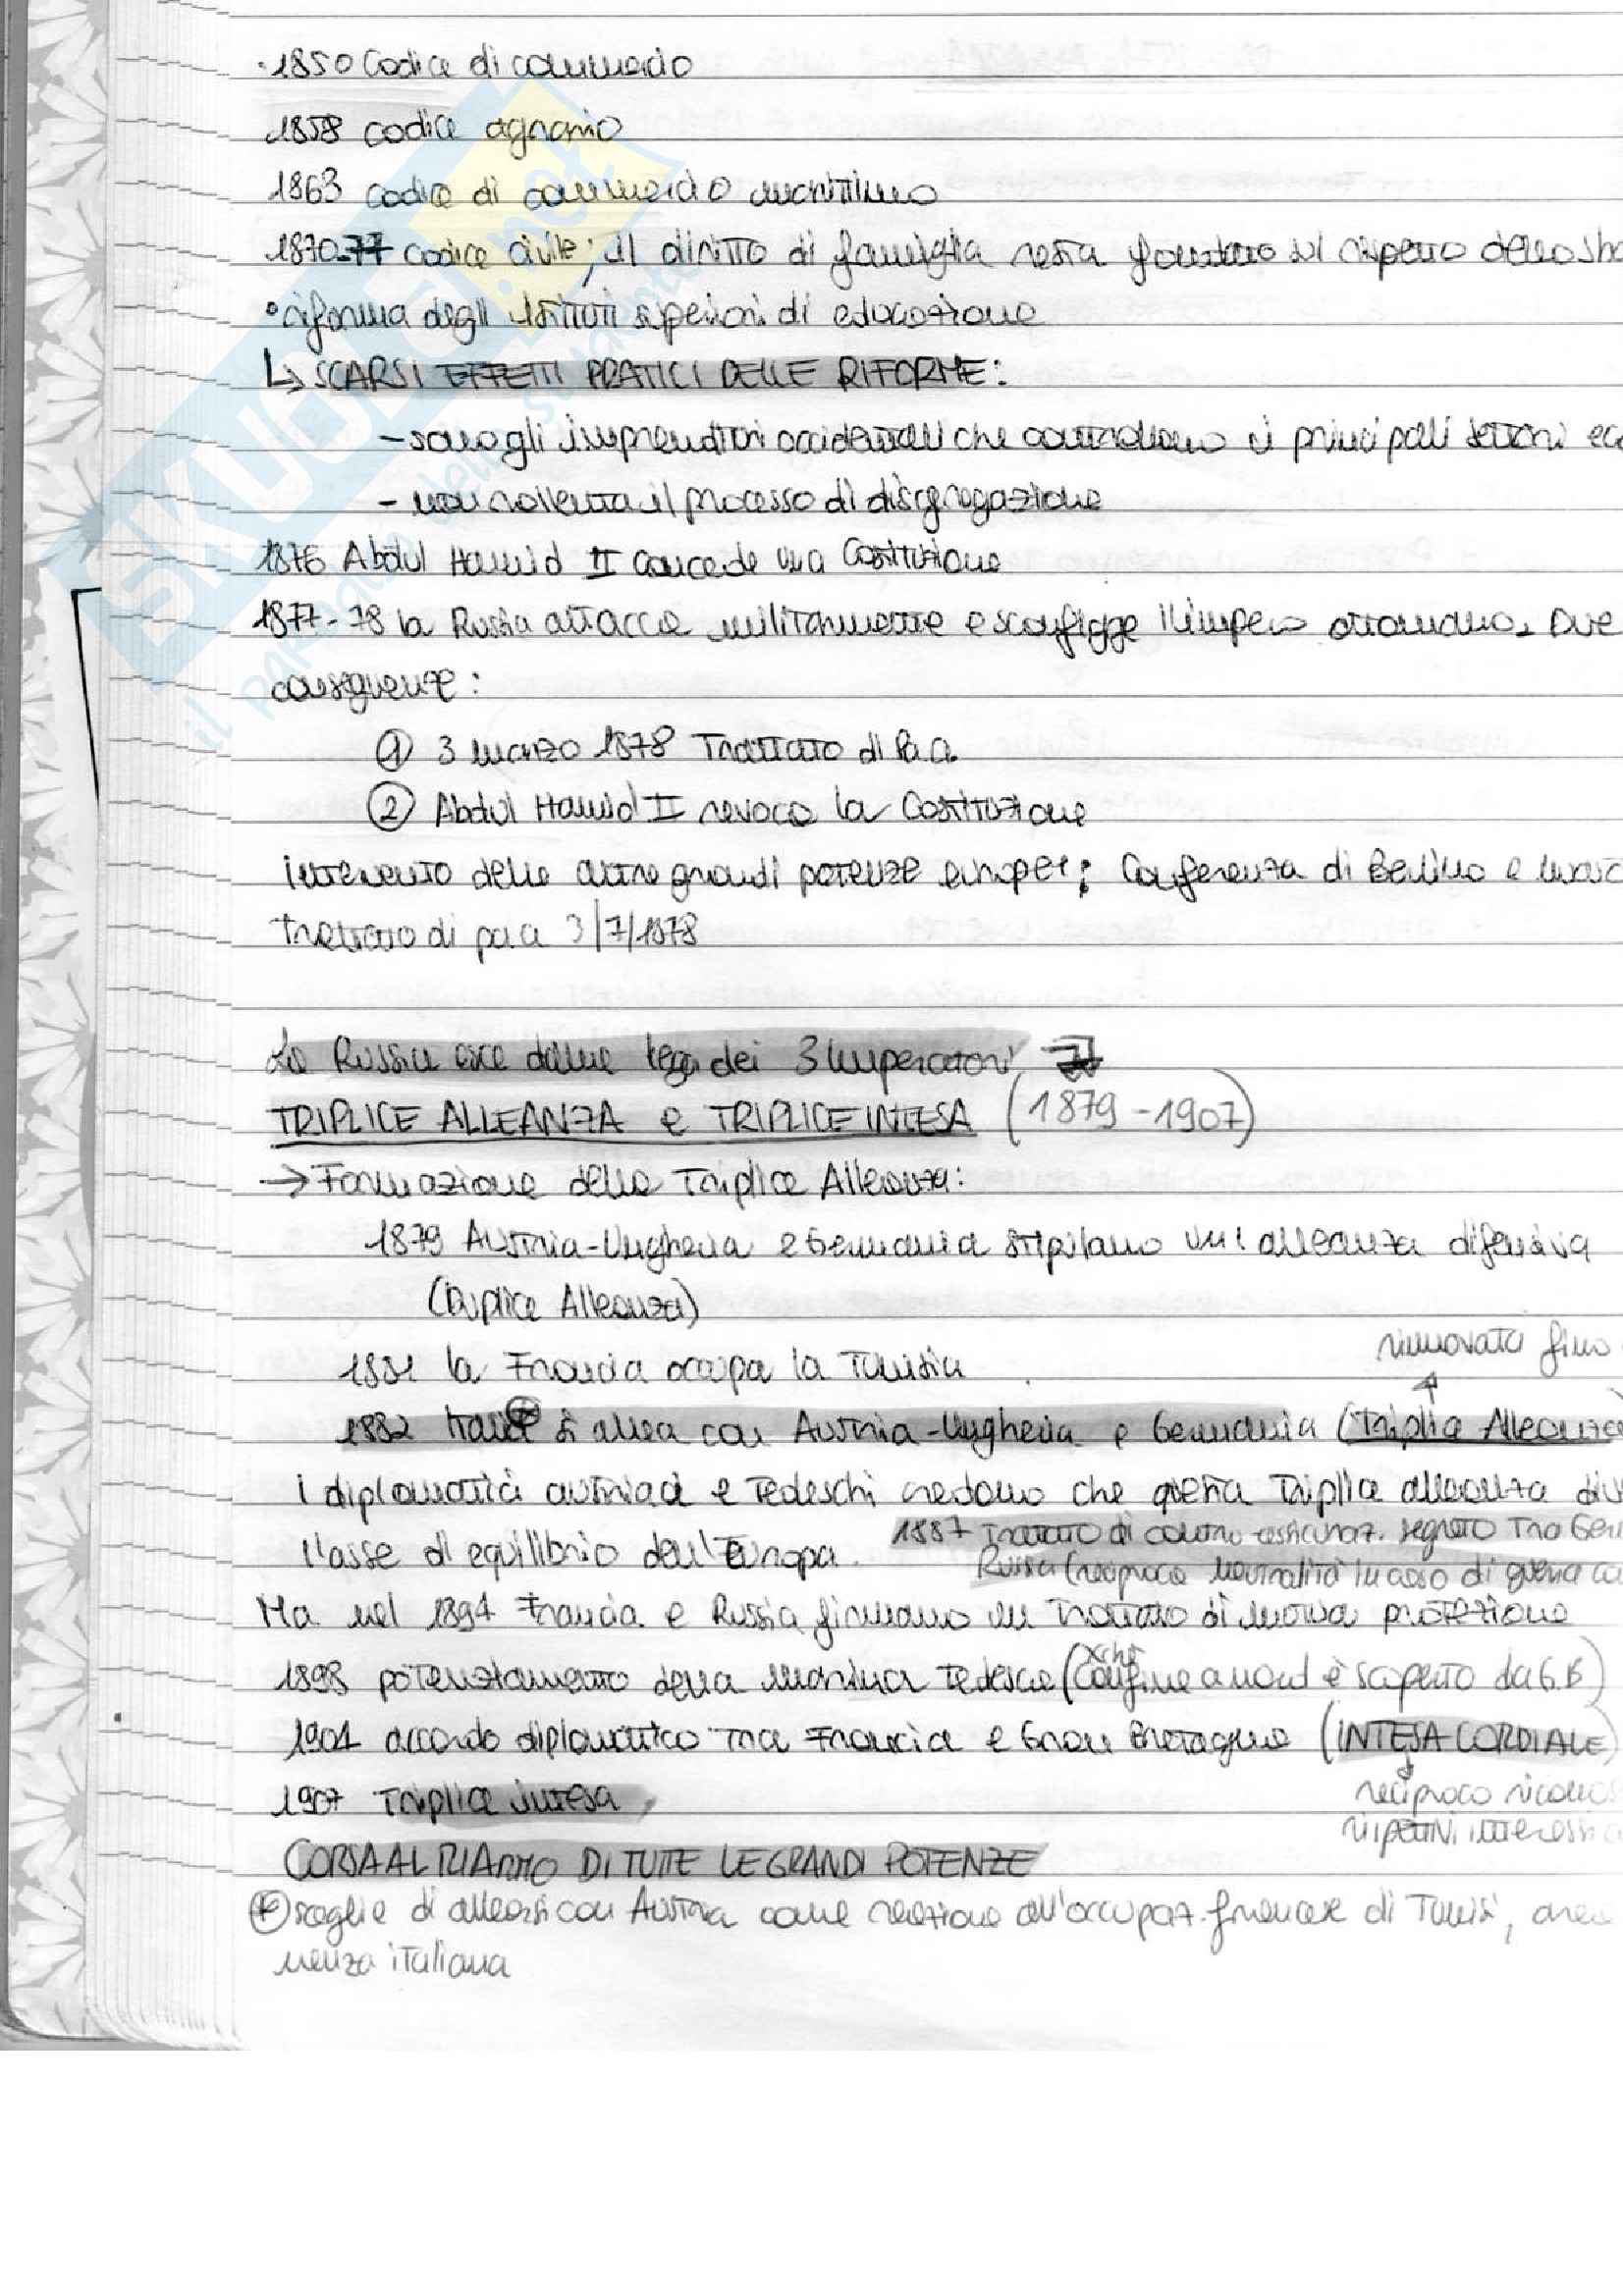 ·1850 Codice di commercio
1858 codice agrario
1863 codice di commercio marittimo
1870-77 codice civile; il diritto di famiglia resta fondato sul rispetto della sha
• riforma degli istituti superiori di educazione
↳ SCARSI EFFETTI PRATICI DELLE RIFORME:
- sono gli imprenditori occidentali che controllano i principali settori ec
- non rallenta il processo di disgregazione
1876 Abdul Hamid II concede una Costituzione
1877-78 la Russia attacca militarmente e sconfigge l'impero ottomano. Due
conseguenze:
① 3 marzo 1878 Trattato di Pace
② Abdul Hamid II revoca la Costituzione
intervento delle altre grandi potenze europee: Conferenza di Berlino e nuovo
trattato di pace 3/7/1878
La Russia esce dalla lega dei 3 Imperatori
TRIPLICE ALLEANZA e TRIPLICE INTESA (1879-1907)
→ Formazione della Triplice Alleanza:
1879 Austria-Ungheria e Germania stipulano un'alleanza difensiva
(Duplice Alleanza)
rinnovata fino
1881 la Francia occupa la Tunisia
1882 Italia si allea con Austria-Ungheria e Germania (Triplice Alleanza
I diplomatici austriaci e tedeschi credono che questa Triplice alleanza div
l'asse di equilibrio dell'Europa.
1887 Trattato di contro assicuraz. segreto tra Ger
Russia (reciproca neutralità in caso di guerra co
Ma nel 1894 Francia e Russia firmano un Trattato di mutua protezione
1898 potenziamento della marina tedesca (xché confine a nord è scoperto da G.B)
1904 accordo diplomatico tra Francia e Gran Bretagna (INTESA CORDIALE)
reciproco ricono
rispettivi interessi
1907 Triplice intesa
CORSA AL RIARMO DI TUTTE LE GRANDI POTENZE
⊛ sceglie di allearsi con Austria come reazione all'occupaz. francese di Tunisi, area
nenza italiana
SKUOLA.net
il paradiso dello studente